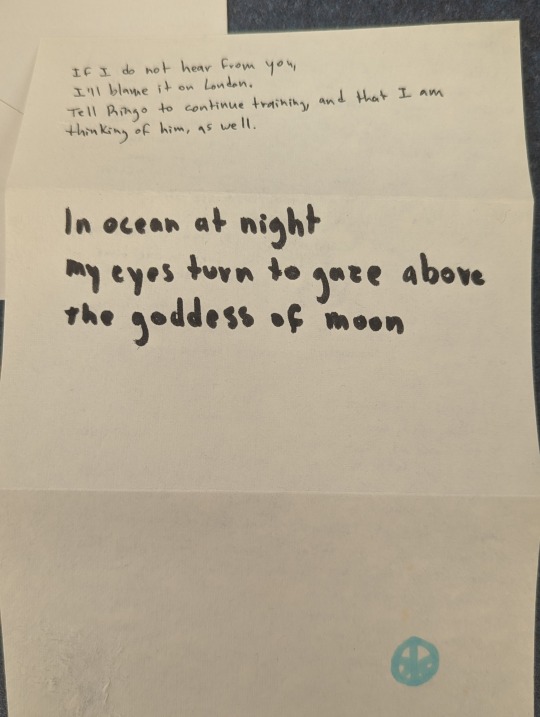 If I do not hear from you,
I'll blame it on London.
Tell Ringo to continue training, and that I am
thinking of him, as well.
In ocean at night
my eyes turn to gaze above
the goddess of moon